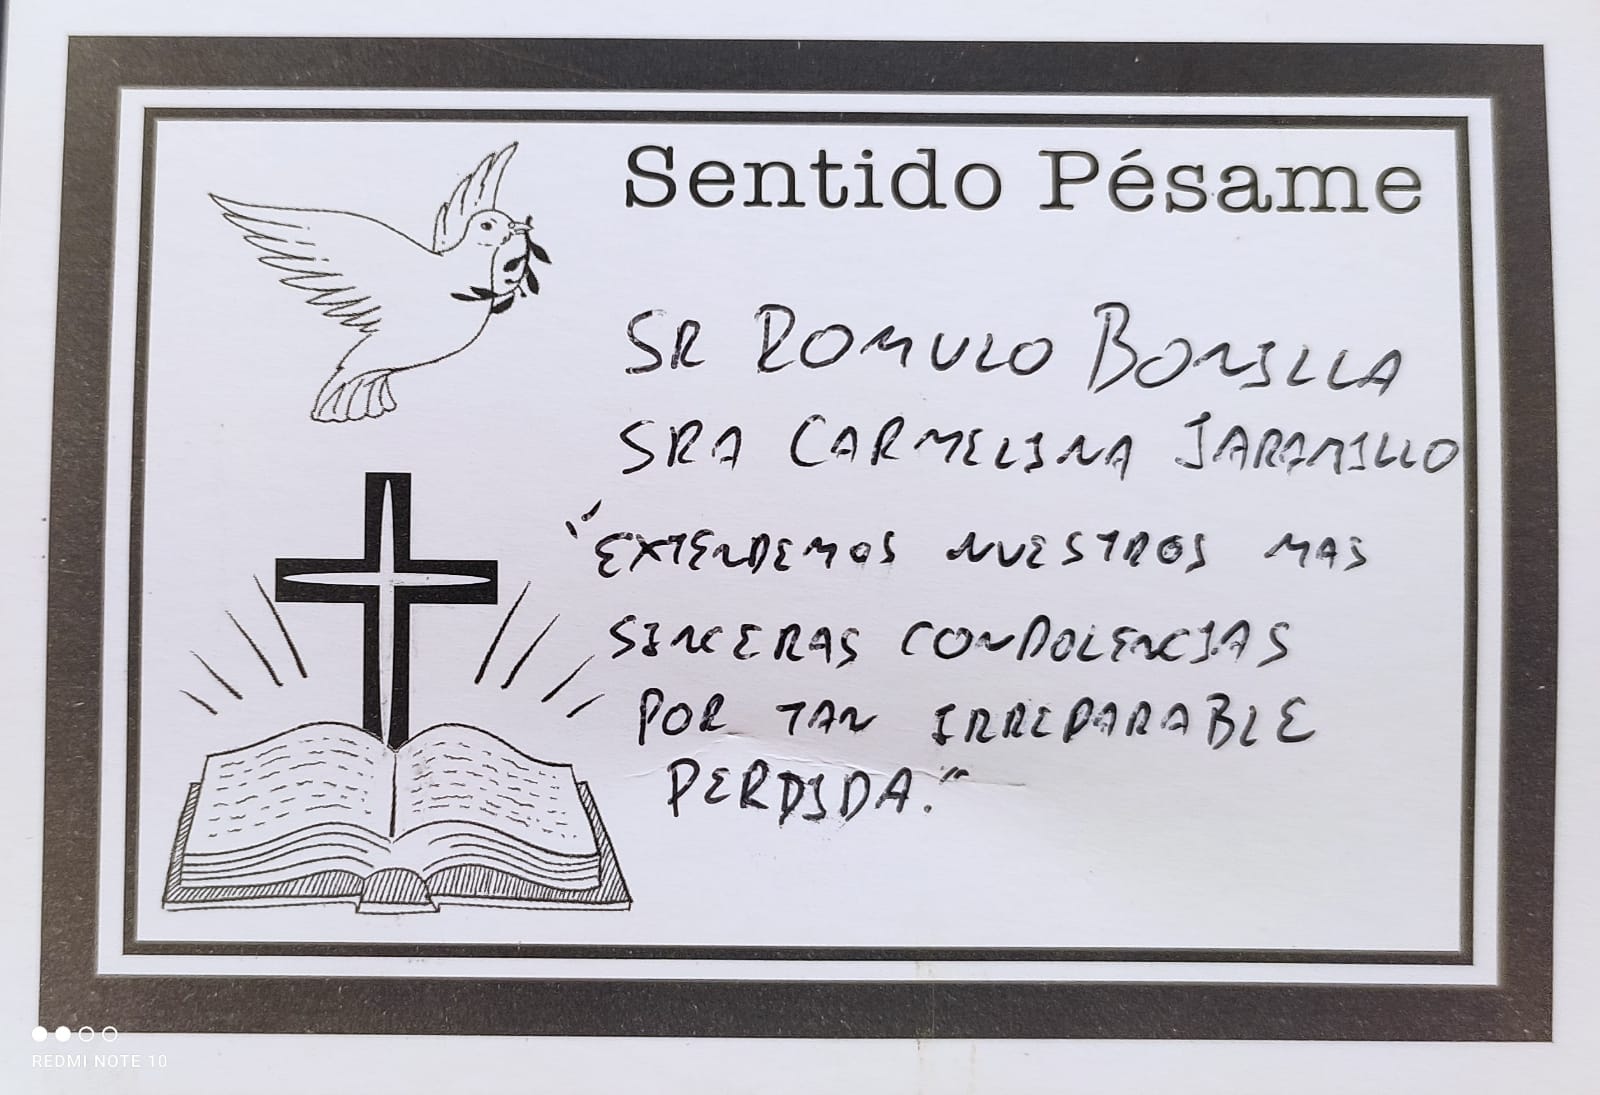 Sentido Pésame
SR ROMULO BONILLA
SRA CARMELINA JARAMILLO
"EXTENDEMOS NUESTROS MAS
SINCERAS CONDOLENCIAS
POR TAN IRREPARABLE
PERDIDA."
REDMI NOTE 10